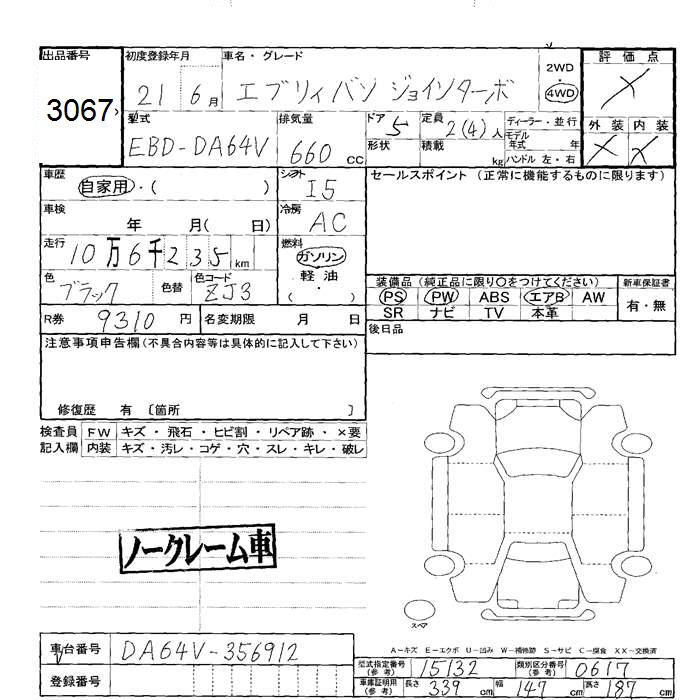 出品番号
3067
初度登録年月
21 6月
車名・グレード
エブリィバン ジョインターボ
2WD
・
4WD
評価点
X
外装 内装
X X
型式
EBD-DA64V
排気量
660 cc
ドア
5
形状
定員
2(4)人
積載
kg
ディーラー・並行
モデル
年式 年
ハンドル 左・右
車歴
自家用・( )
シフト
I5
車検
年 月( 日)
冷房
AC
走行
10万6千235km
燃料
ガソリン
軽油
・
( )
色
ブラック
色替
色コード
ZJ3
R券 9310 円
名変期限 月 日
セールスポイント(正常に機能するものに限ります)
装備品(純正品に限り○をつけてください)
PS PW ABS エアB AW
SR ナビ TV 本革
新車保証書
有・無
後日品
注意事項申告欄(不具合内容等は具体的に記入して下さい)
修復歴 有 〔箇所 〕
検査員
記入欄
FW キズ・飛石・ヒビ割・リペア跡・×要
内装 キズ・汚レ・コゲ・穴・スレ・キレ・破レ
ノークレーム車
スペア
A−キズ E−エクボ U−凹み W−補修跡 S−サビ C−腐食 XX−交換済
車台番号
DA64V-356912
登録番号
型式指定番号
(参考)
15132
類別区分番号
(参考)
0617
車庫証明用
(参考)
長さ 339 cm 幅 147 cm 高さ 187 cm